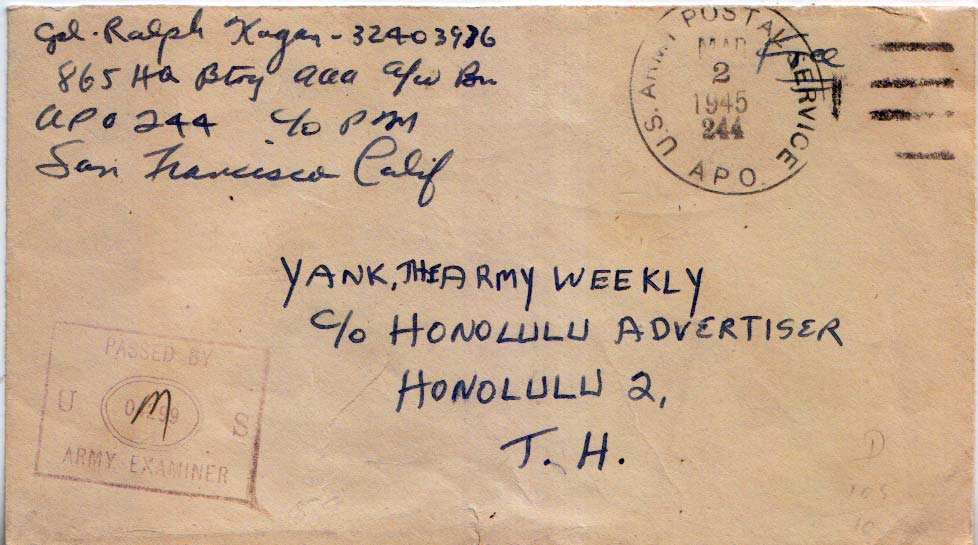 Cpl. Ralph Kagan - 32403936
865 HQ Btry aaa a/w Bn
APO 244 c/o P M
San Francisco Calif
U.S. ARMY POSTAL SERVICE
A.P.O.
MAR
2
1945
244
Free
YANK, THE ARMY WEEKLY
c/o HONOLULU ADVERTISER
HONOLULU 2,
T. H.
PASSED BY
U S
M
ARMY EXAMINER
D